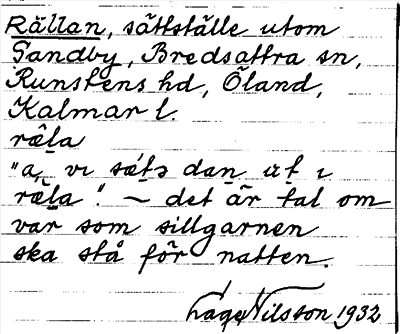 Rällan, sättställe utom
Sandby, Bredsättra sn,
Runstens hd, Öland,
Kalmar l.
räla
"a, vi sätə dan ut i
räla". — det är tal om
var som sillgarnen
ska stå för natten.
Låge Nilsson 1932